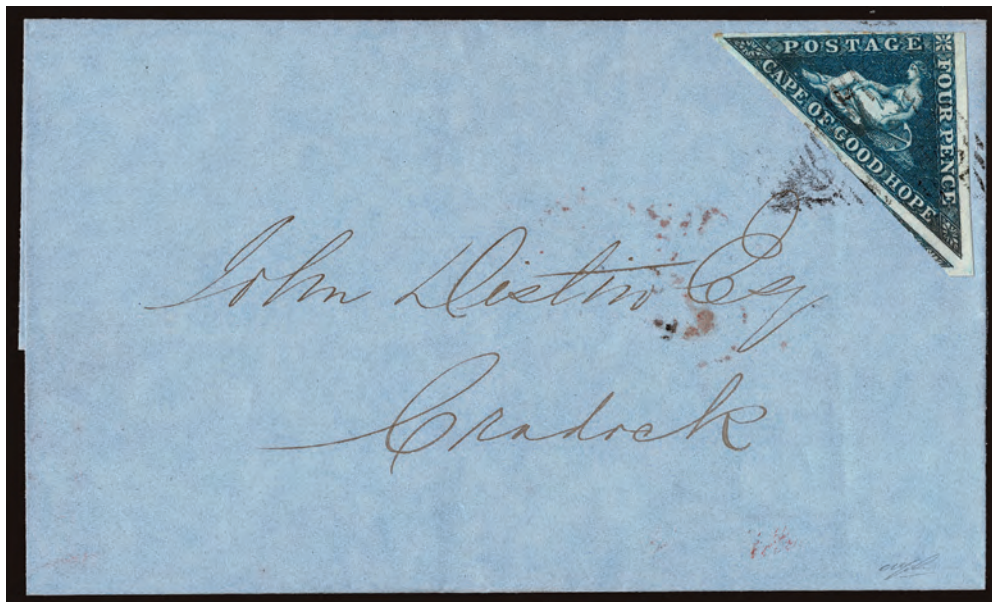 POSTAGE
FOUR PENCE
CAPE OF GOOD HOPE
John Distin Esq.
Cradock